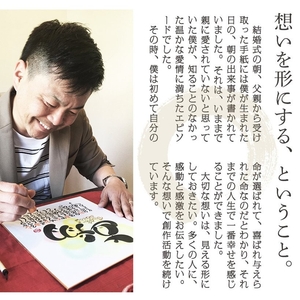 想いを形にする、ということ。
結婚式の朝、父親から受け
取った手紙には僕が生まれた
日の、朝の出来事が書かれて
いました。それは、いままで
親に愛されていないと思って
いた僕が、知ることのなかっ
た温かな愛情に満ちたエピソ
ードでした。
その時、僕は初めて自分の
命が選ばれて、喜ばれ与えら
れた命なのだとわかり、それ
までの人生で一番幸せを感じ
ることができました。
大切な想いは、見える形に
しておきたい。多くの人に、
感動と感激をお伝えしたい。
そんな想いで創作活動を続け
ています。